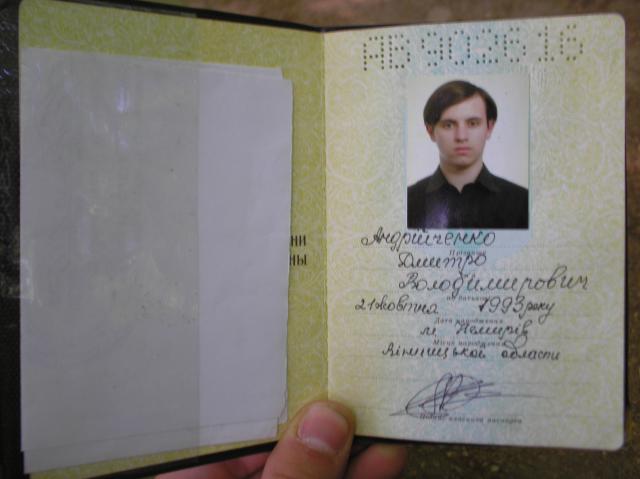 НИ
НЫ
АВ 902616
Андрійченко
Прізвище
Дмитро
Володимирович
по батькові
21 жовтня 1993 року
Дата народження
м. Немирів
Місце народження
Вінницької області
Підпис власника паспорта